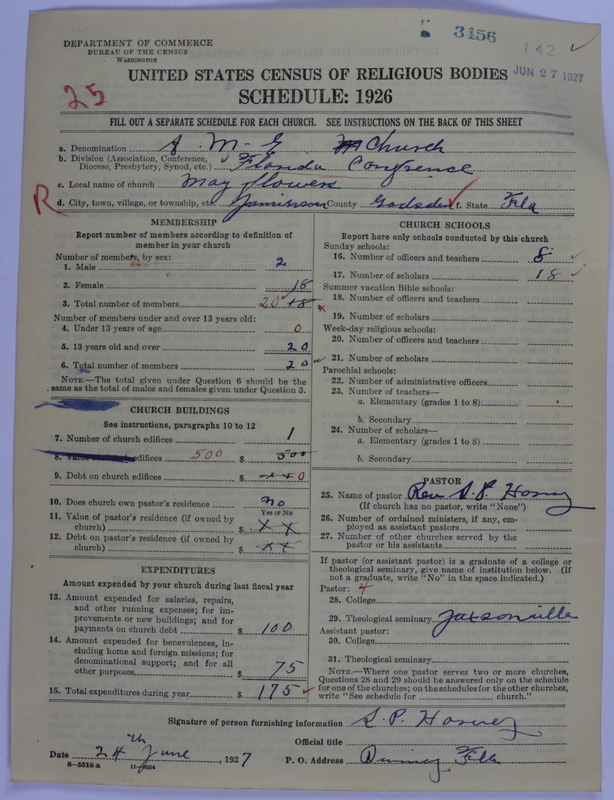 3456
142 ✓
JUN 27 1927
DEPARTMENT OF COMMERCE
BUREAU OF THE CENSUS
WASHINGTON
UNITED STATES CENSUS OF RELIGIOUS BODIES
25
SCHEDULE: 1926
FILL OUT A SEPARATE SCHEDULE FOR EACH CHURCH. SEE INSTRUCTIONS ON THE BACK OF THIS SHEET
a. Denomination A. M. E Church
b. Division (Association, Conference, Diocese, Presbytery, Synod, etc.) Florida Conference
c. Local name of church May flowers
R
d. City, town, village, or township, etc. Jaminson County Gadsden State Fla
MEMBERSHIP
Report number of members according to definition of
member in your church
Number of members, by sex:
1. Male 2
2. Female 18
3. Total number of members 20 18
Number of members under and over 13 years old:
4. Under 13 years of age 0
5. 13 years old and over 20
6. Total number of members 20
NOTE.—The total given under Question 6 should be
same as the total of males and females given under Question 3.
CHURCH BUILDINGS
See instructions, paragraphs 10 to 12
7. Number of church edifices 1
8. Value of church edifices 500 $ 500
9. Debt on church edifices $ 0
10. Does church own pastor's residence no
Yes or No
11. Value of pastor's residence (if owned by
church) $ X X
12. Debt on pastor's residence (if owned by
church) $ X X
EXPENDITURES
Amount expended by your church during last fiscal year
13. Amount expended for salaries, repairs,
and other running expenses; for im-
provements or new buildings; and for
payments on church debt $ 100
14. Amount expended for benevolences, in-
cluding home and foreign missions; for
denominational support; and for all
other purposes $ 75
15. Total expenditures during year $ 175
CHURCH SCHOOLS
Report here only schools conducted by this church
Sunday schools:
16. Number of officers and teachers 8
17. Number of scholars 18
Summer vacation Bible schools:
18. Number of officers and teachers
19. Number of scholars
Week-day religious schools:
20. Number of officers and teachers
21. Number of scholars
Parochial schools:
22. Number of administrative officers
23. Number of teachers—
a. Elementary (grades 1 to 8)
b. Secondary
24. Number of scholars—
a. Elementary (grades 1 to 8)
b. Secondary
PASTOR
25. Name of pastor Rev. S. P.
(If church has no pastor, write "None")
26. Number of ordained ministers, if any, em-
ployed as assistant pastors
27. Number of other churches served by the
pastor or his assistants
If pastor (or assistant pastor) is a graduate of a college or
theological seminary, give name of institution below. (If
not a graduate, write "No" in the space indicated.)
Pastor: 4
28. College
29. Theological seminary Jaxsonville
Assistant pastor:
30. College
31. Theological seminary
NOTE.—Where one pastor serves two or more churches,
Questions 28 and 29 should be answered only on the schedule
for one of the churches; on the schedules for the other churches,
write "See schedule for church."
Signature of person furnishing information S. P.
Official title
Date 24th June, 1927 P. O. Address Fla
8-5518 a 11-9054